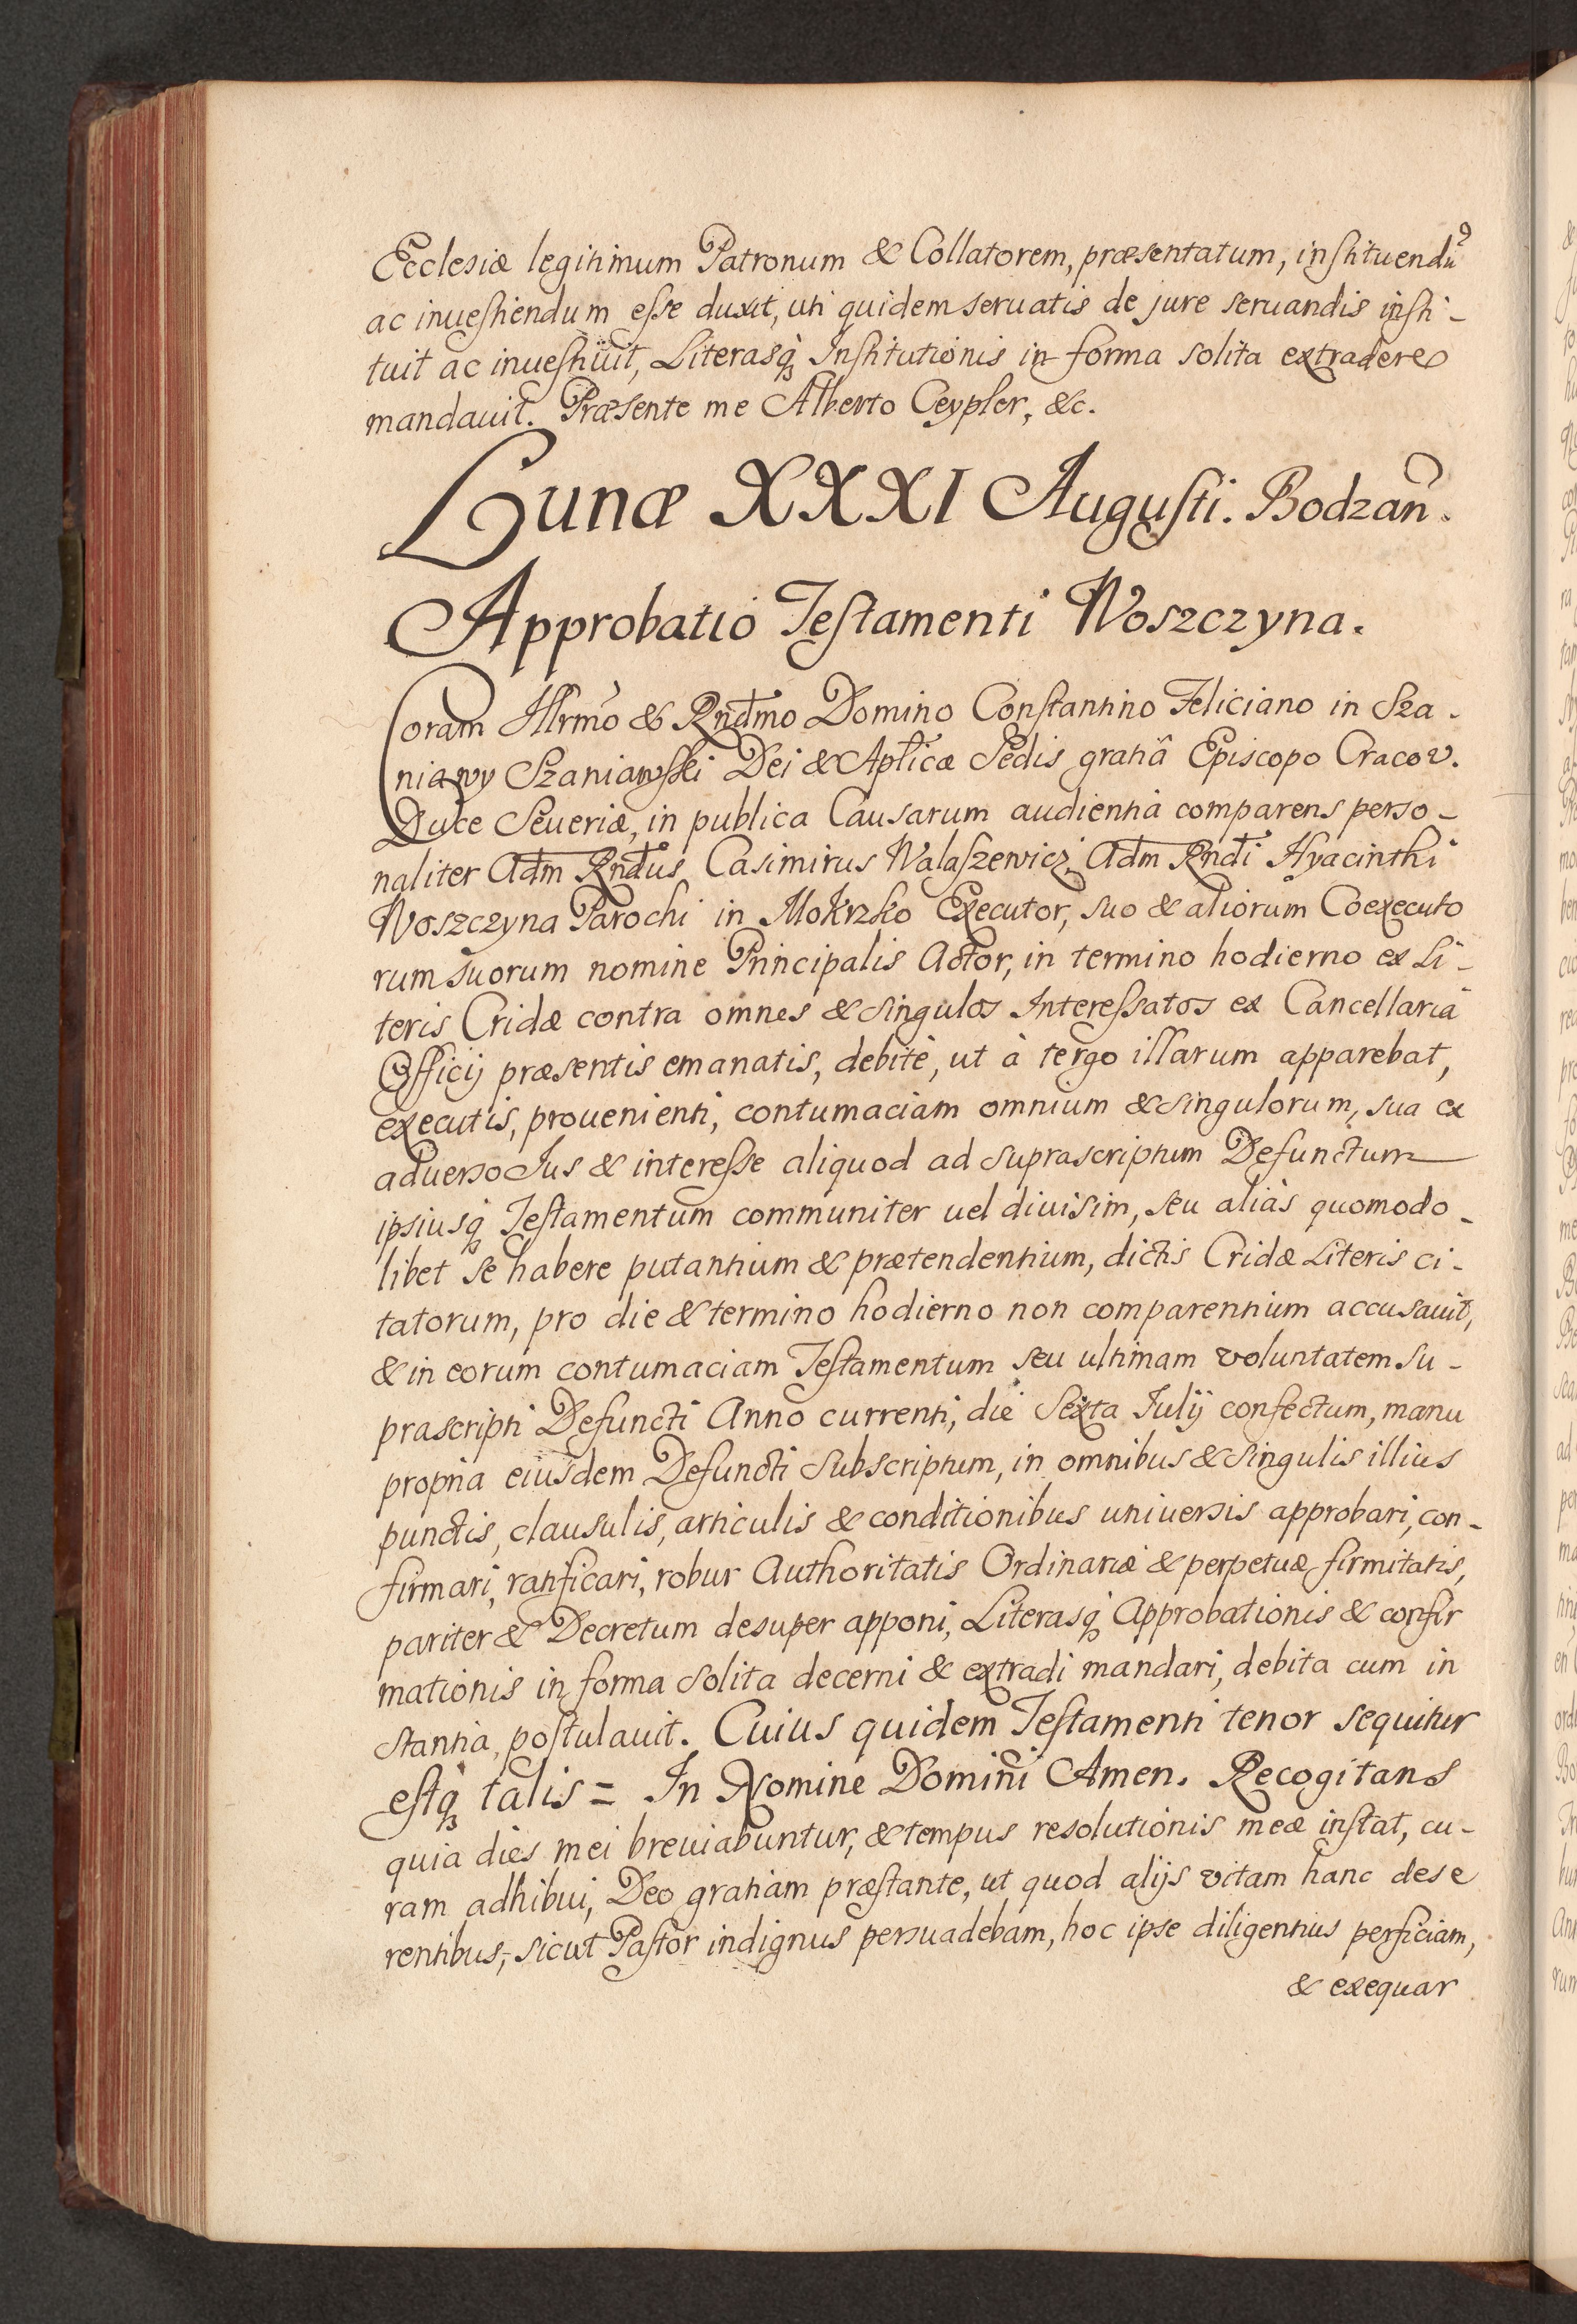 Ecclesiæ legitimum Patronum & Collatorem, præsentatum, instituendũ
ac inuestiendum esse duxit, uti quidem seruatis de jure seruandis insti-
tuit ac inuestiuit, Literasq̃ Institutionis in forma solita extradere
mandauit. Præsente me Alberto Ceypler, &c.
Lunæ XXXI Augusti. Bodzañ.
Approbatio Testamenti Woszczyna.
Coram Illrmo & Rndmo Domino Constantino Feliciano in Sza-
niawy Szaniawski Dei & Aplicæ Sedis gratiâ Episcopo Cracov.
Duce Seueriæ, in publica Causarum audientia comparens perso-
naliter Adm Rndus Casimirus Walaszewicz, Adm Rndi Hyacinthi
Woszczyna Parochi in Mokrzko Executor, suo & aliorum Coexecuto
rum suorum nomine Principalis Actor, in termino hodierno ex Li-
teris Cridæ contra omnes & singulos Interessatos ex Cancellaria
Officij præsentis emanatis, debitè, ut à tergo illarum apparebat,
executis, prouenienti, contumaciam omnium & singulorum, sua ex
aduerso Jus & interesse aliquod ad suprascriptum Defunctum
ipsiusq̃ Testamentum communiter uel diuisim, seu aliàs quomodo-
libet se habere putantium & prætendentium, dictis Cridæ Literis ci-
tatorum, pro die & termino hodierno non comparentium accusauit,
& in eorum contumaciam Testamentum seu ultimam voluntatem su-
prascripti Defuncti Anno currenti, die Sexta Julij confectum, manu
propria eiusdem Defuncti subscriptum, in omnibus & singulis illius
punctis, clausulis, articulis & conditionibus uniuersis approbari, con-
firmari, ratificari, robur Authoritatis Ordinariæ & perpetuæ firmitatis,
pariter & Decretum desuper apponi, Literasq̃ Approbationis & confir
mationis in forma solita decerni & extradi mandari, debita cum in
stantia, postulauit. Cuius quidem Testamenti tenor sequitur
estq̃ talis = In Nomine Domini Amen. Recogitans
quia dies mei breuiabuntur, & tempus resolutionis meæ instat, cu-
ram adhibui, Deo gratiam præstante, ut quod alijs vitam hanc dese
rentibus, sicut Pastor indignus persuadebam, hoc ipse diligentius perficiam,
& exequar